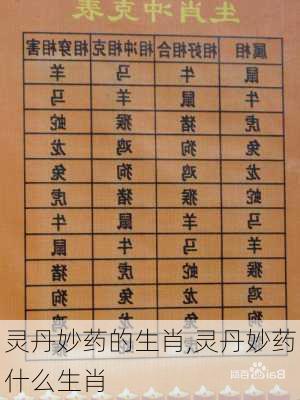 生肖冲克表
属相 相好相合 相冲相克 相穿相害
鼠 牛 马 羊
牛 鼠 羊 马
虎 猪 猴 蛇
兔 狗 鸡 龙
龙 鸡 狗 兔
蛇 猴 猪 虎
马 羊 鼠 牛
羊 马 牛 鼠
猴 蛇 虎 猪
鸡 龙 兔 狗
狗 兔 龙 鸡
灵丹妙药的生肖,灵丹妙药
什么生肖
Bai百科